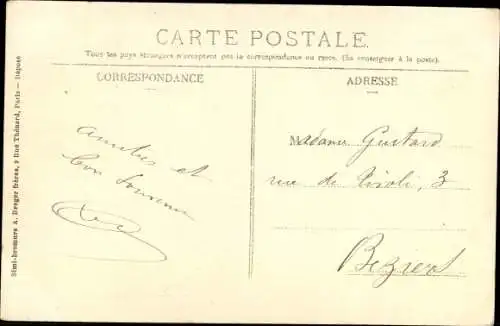 CARTE POSTALE
Tous les pays étrangers n'acceptent pas la correspondance au recto. (Se renseigner à la poste).
CORRESPONDANCE
ADRESSE
Amitiés et
bon Souvenir
Madame Gustard
rue de Rivoli, 3
Beziers
Simi-Bromure A. Breger frères, 9 Rue Thénard, Paris — Déposé